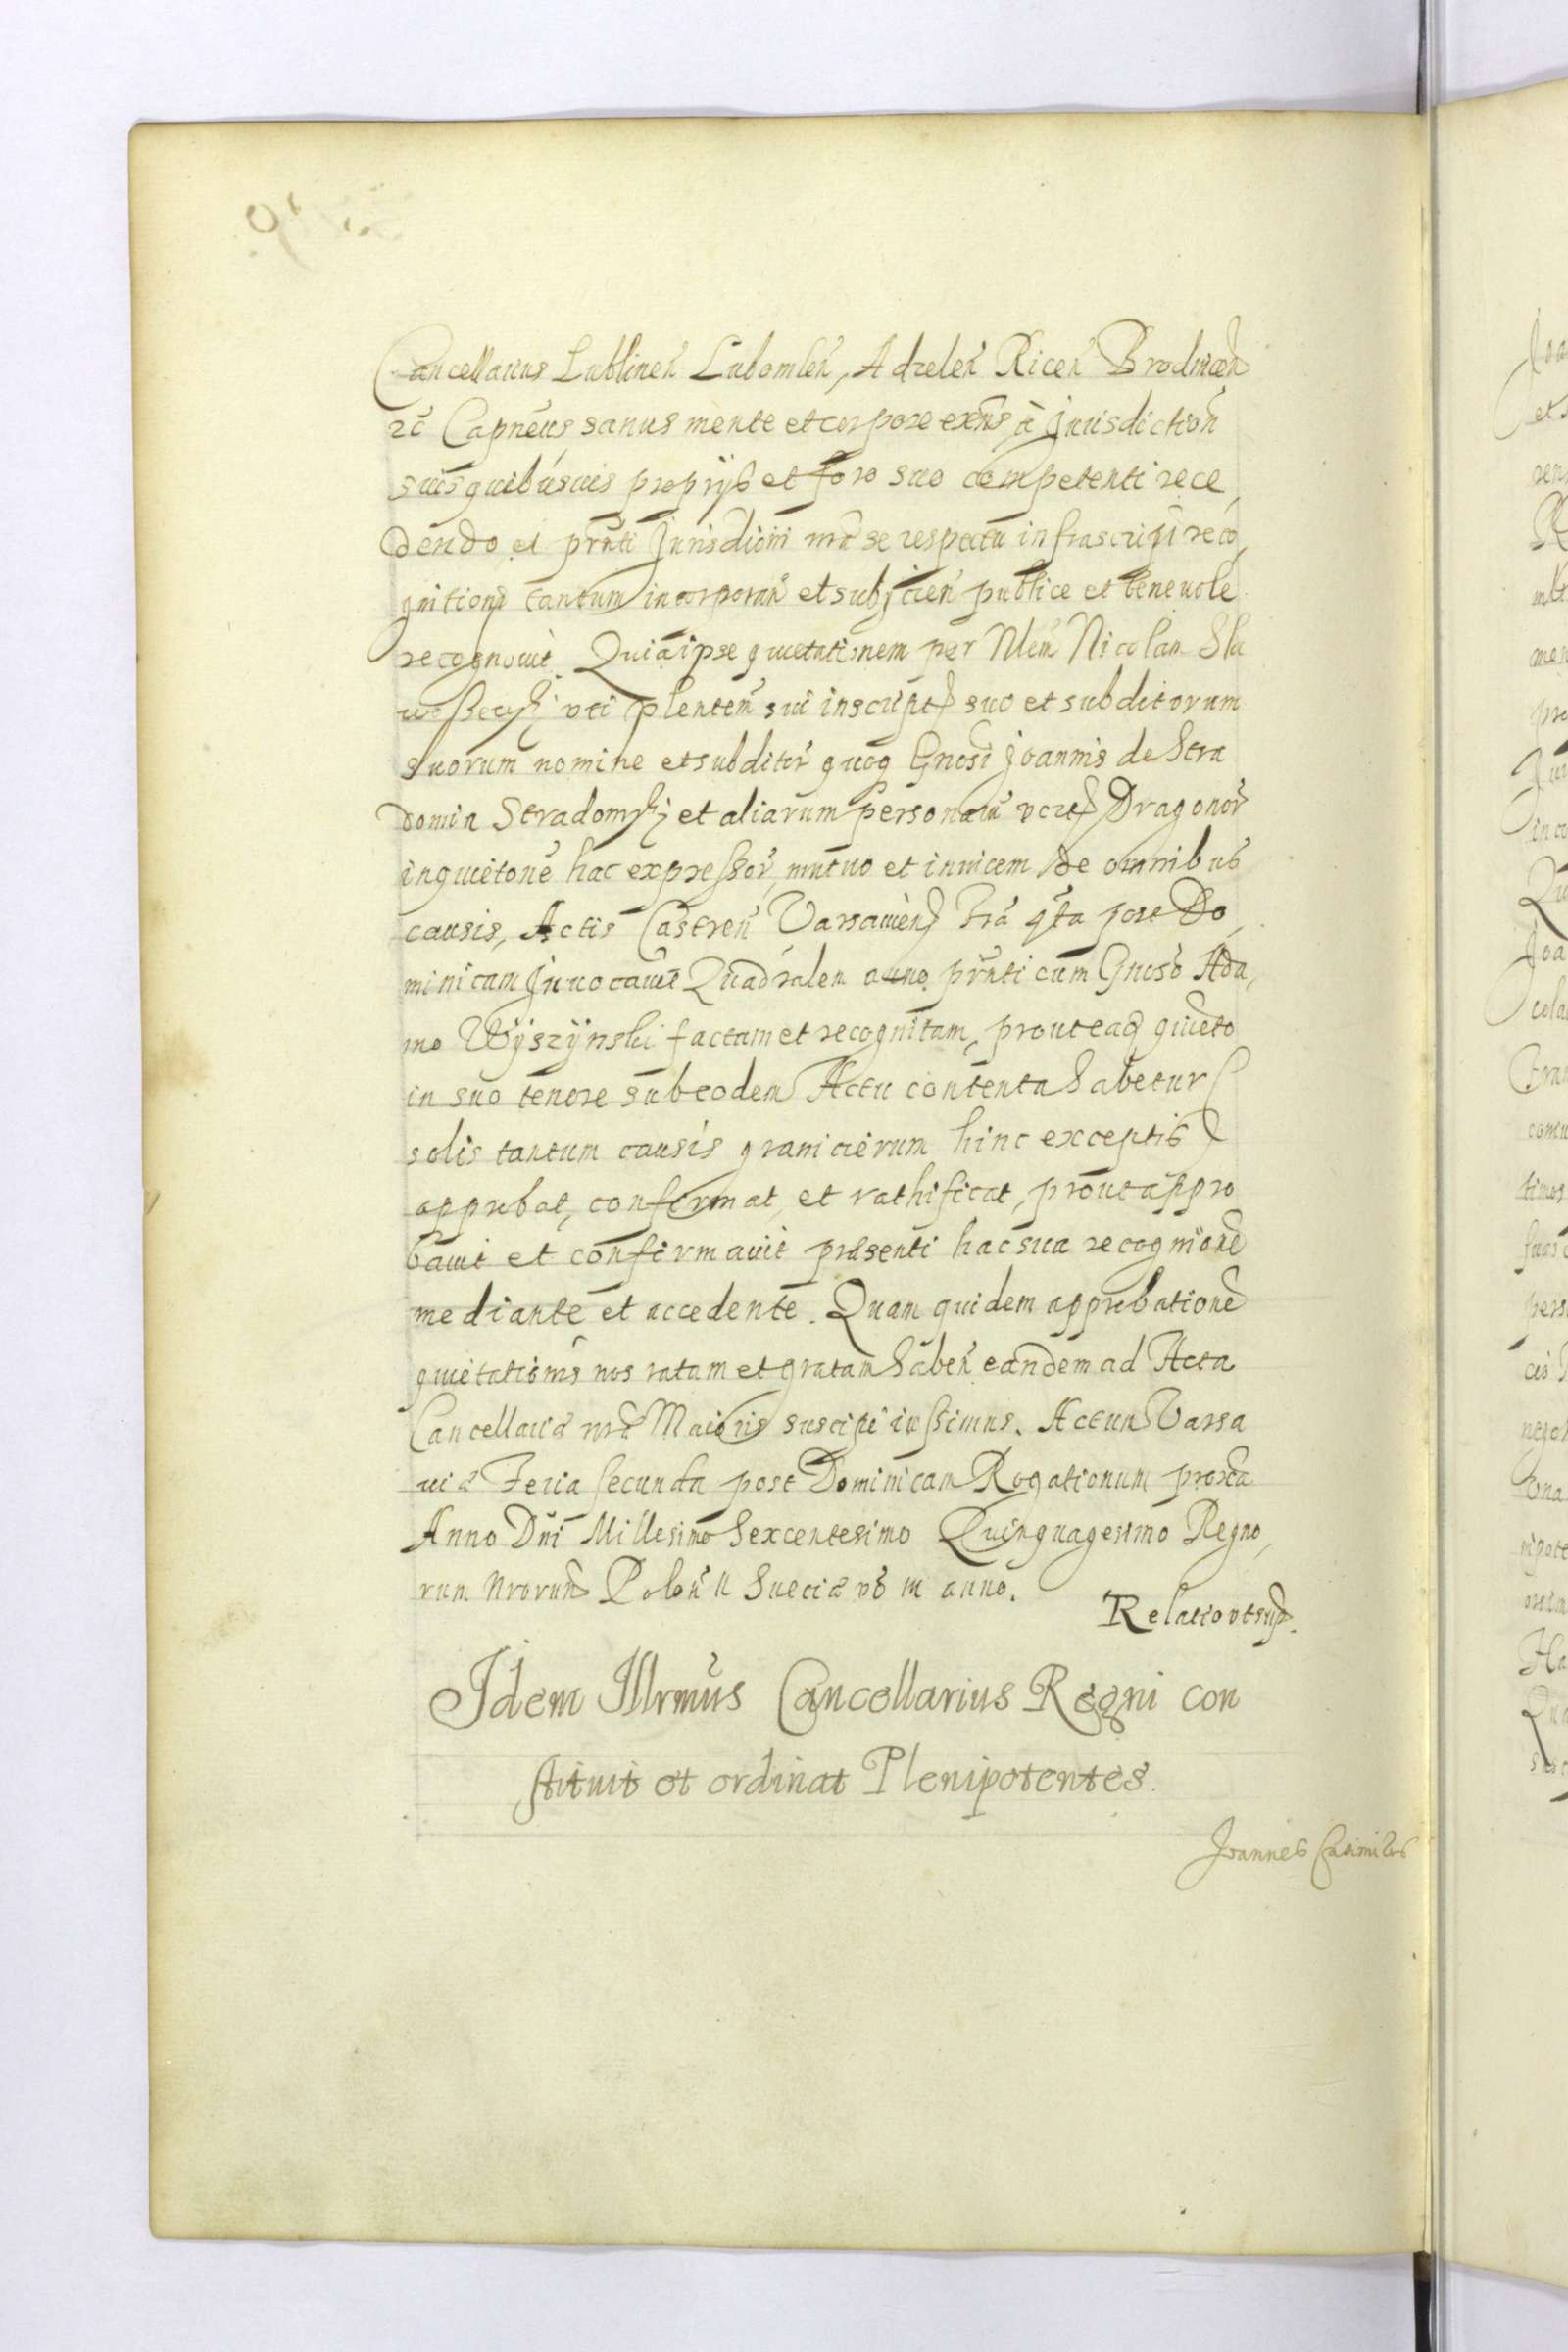 Cancellarius Lublinen̄ Lubomlen̄, Adzelen̄ Ricen̄ Brodnicen̄
zc̄ Capnēus, sanus mente et corpore exn̄s à Jurisdiction̄
suis quibusvis proprijs et foro suo competenti rece,
dendo, et prn̄ti Jurisdioni nrā se respectu infrascriptī reco,
gnitionī tantum incorporan̄ et subijcien̄ publice et benevole
recognovit. Quia ipse quietationem per Nlēm Nicolaū Sla
woszewskj uti plentem̄ sui inscript suo et subditorum
suorum nomine et subditor̄ quoq Gnōsi Joannis de Stra
domin Stradomskj et aliarum personarū Dragonor̄
in quietōne hac expressor̄, mutuo et invicem de omnibus
causis, Actis Castren̄ Varsavien̄ fr̄a qr̄ta post Do,
minicam Invocavit Quadr̄alem anno prn̄ti cum Gnōso Ada,
mo Wÿszÿnski factam et recognitam, prout eaq quieto
in suo tenore sub eodem Actu contenta habetur (
solis tantum causis granicierum hinc exceptis )
approbat, confirmat, et rathificat, prout appro
bavit et confirmavit præsenti hac sua recognioné
mediante et accedente. Quam quidem approbationē
quietationis nos ratam et gratam haben̄ eandem ad Acta
Cancellariæ nrǣ Maioris suscipi iussimus. Actum Varsa
viæ Feria secunda post Dominicam Rogationum proxa
Anno Dn̄i Millesimo Sexcentesimo Quinquagesimo Regno,
rum Nrorum Polon̄ II Sueciæ vō III anno.
Relatio ut sup.
Idem Illrmūs Cancellarius Regni con
stituit et ordinat Plenipotentes.
Joannes Casimirus